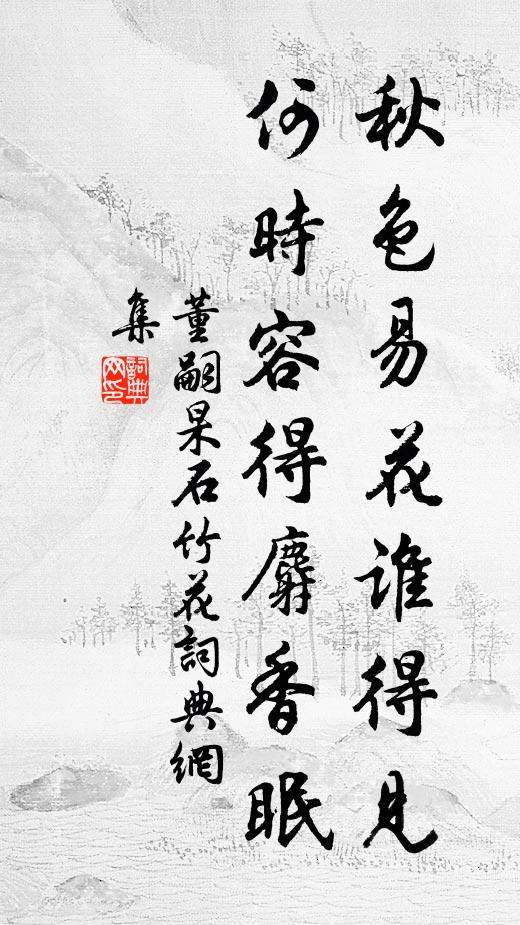 秋色易花谁得見
何時容得麝香眠
董嗣杲石竹花詞典網
集
詞典
网印